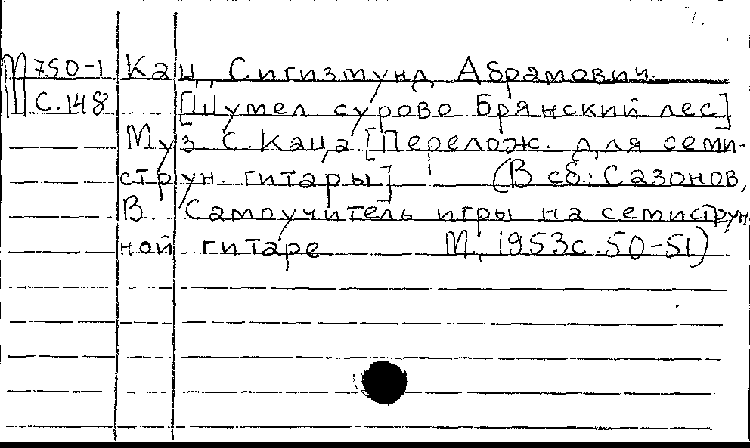 М750-1 Кац, Сигизмунд Абрамович
С.148 [Шумел сурово Брянский лес]
Муз С. Каца [Перелож. для семи-
струн. гитары] (В сб: Сазонов,
В. Самоучитель игры на семиструн
ной гитаре М., 1953с.50-51)